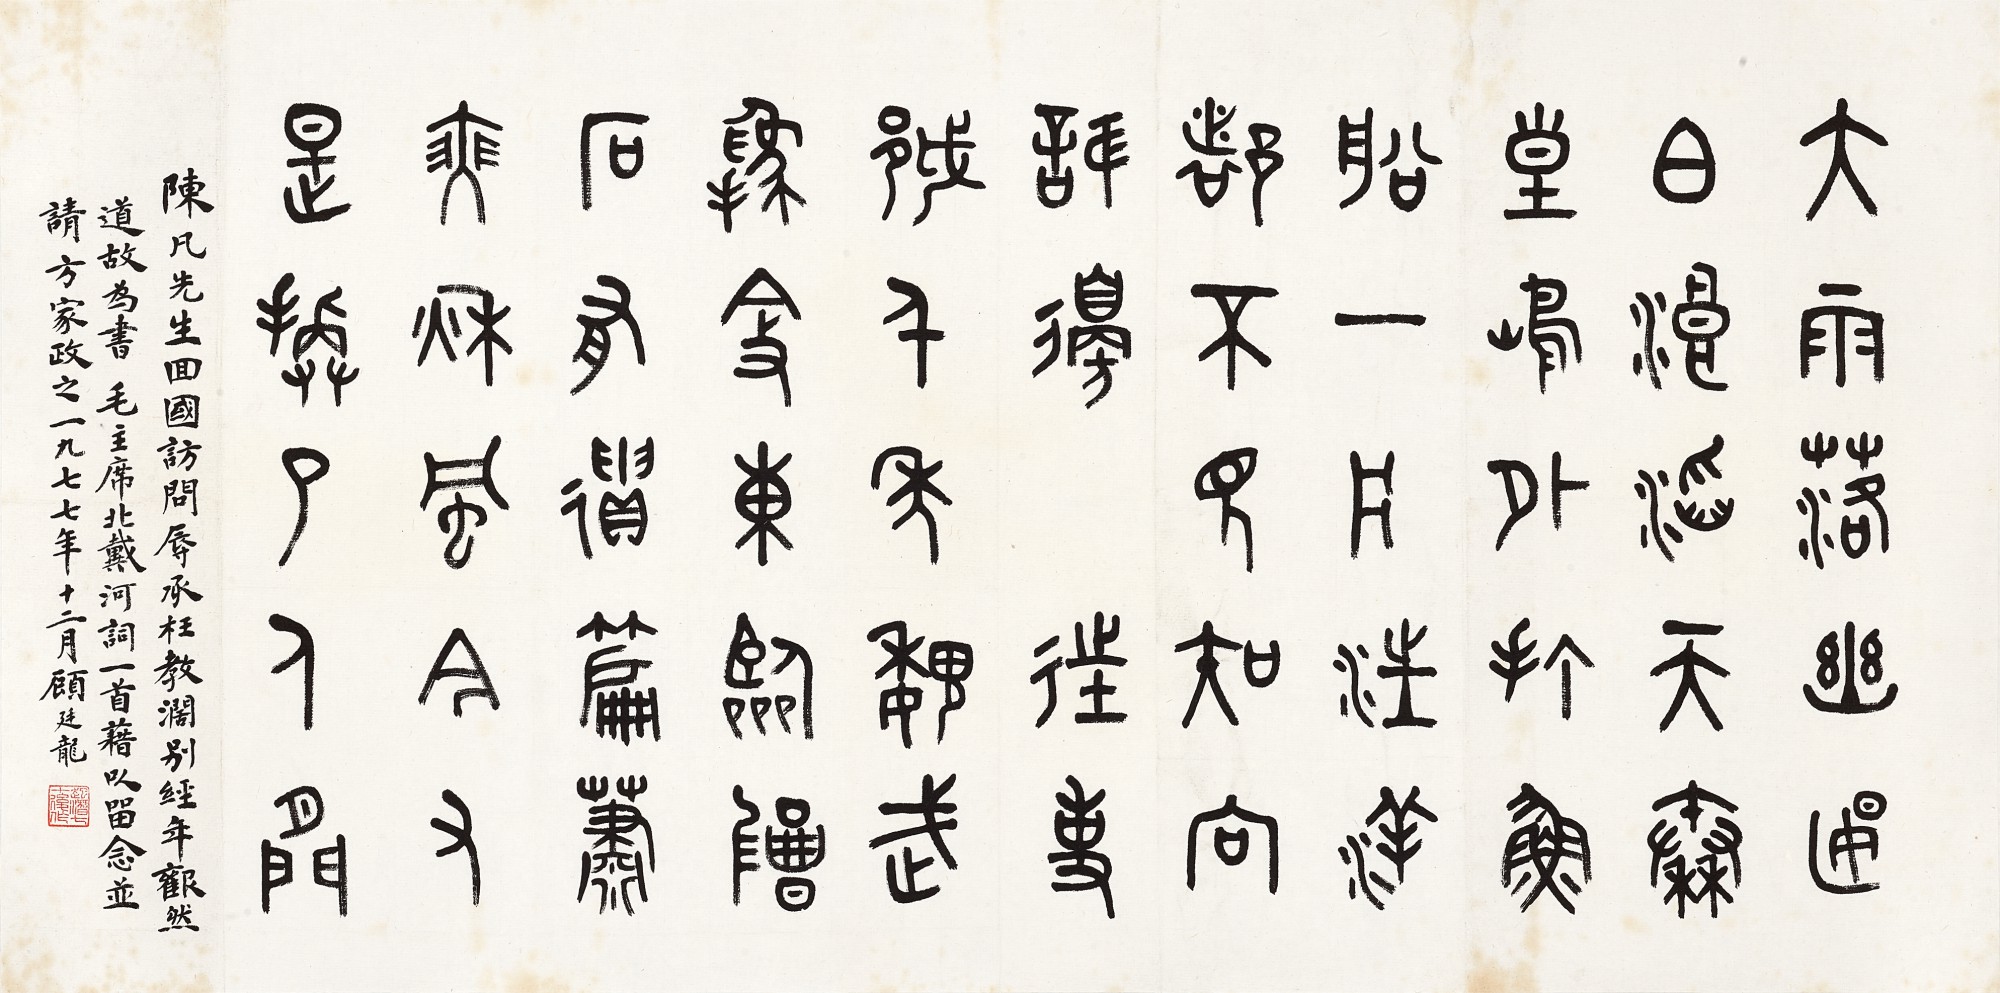 大雨落幽燕
白浪滔天秦
皇島外打魚
船一片汪洋
都不見知向
誰邊 往事
越千年魏武
揮鞭東臨碣
石有遺篇蕭
瑟秋風今又
是換了人間
陳凡先生回國訪問辱承枉教濶別經年歡然
道故為書 毛主席北戴河詞一首藉以留念並
請方家政之一九七七年十二月顧廷龍